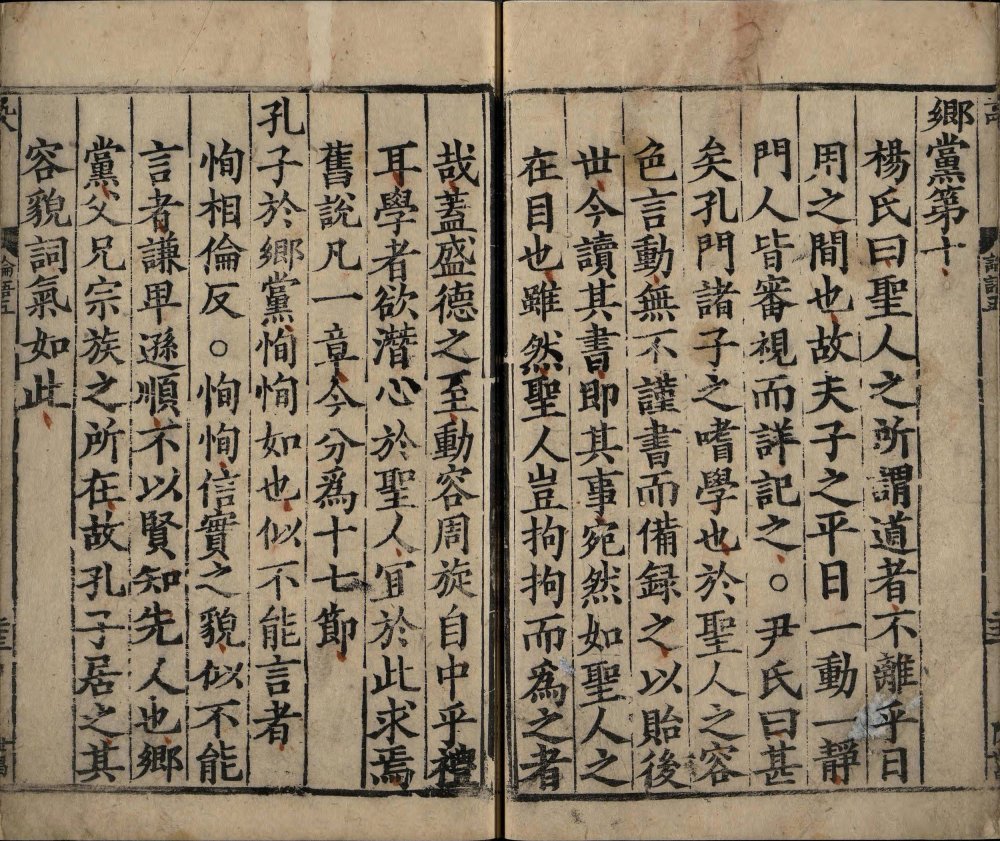 鄉黨第十
楊氏曰聖人之所謂道者不離乎日
用之間也故夫子之平日一動一靜
門人皆審視而詳記之○尹氏曰甚
矣孔門諸子之嗜學也於聖人之容
色言動無不謹書而備録之以貽後
世今讀其書即其事宛然如聖人之
在目也雖然聖人豈拘拘而為之者
哉蓋盛德之至動容周旋自中乎禮
耳學者欲潛心於聖人宜於此求焉
舊說凡一章今分爲十七節
孔子於鄉黨恂恂如也似不能言者
恂相倫反○恂恂信實之貌似不能
言者謙卑遜順不以賢知先人也鄉
黨父兄宗族之所在故孔子居之其
容貌詞氣如此
論語五